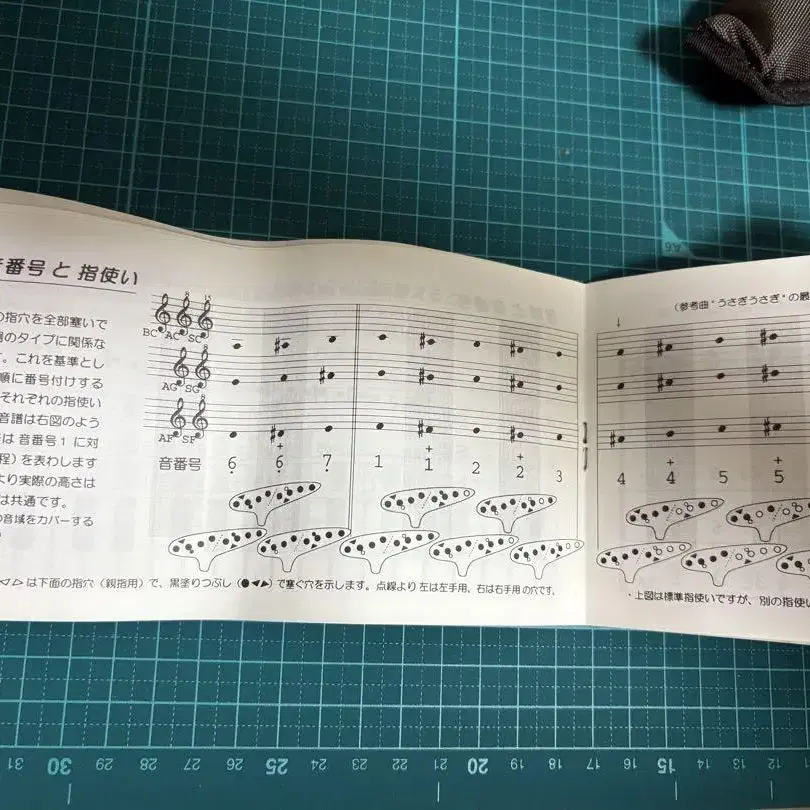 音番号 と 指使い
の指穴を全部塞いで
のタイプに関係な
す。これを基準とし
順に番号付けする
それぞれの指使い
音譜は右図のよう
は 音番号 1 に対
程）を表わします
より実際の高さは
は共通です。
の音域をカバーする
8 15
BC AC SC
8
AG SG
8
AF SF
音番号 6 6 7 1 1 2 2 3
+ + +
◁ ▷ は下面の指穴（親指用）で、黒塗りつぶし（●◀▶）で塞ぐ穴を示します。点線より左は左手用、右は右手用の穴です。
（参考曲 "うさぎうさぎ" の最
↓
4 4 5 5
+ +
・上図は標準指使いですが、別の指使い
A6
31 30 29 28 27 26 25 24 23 22 21 20 19 18 17 16 15 14 13 12